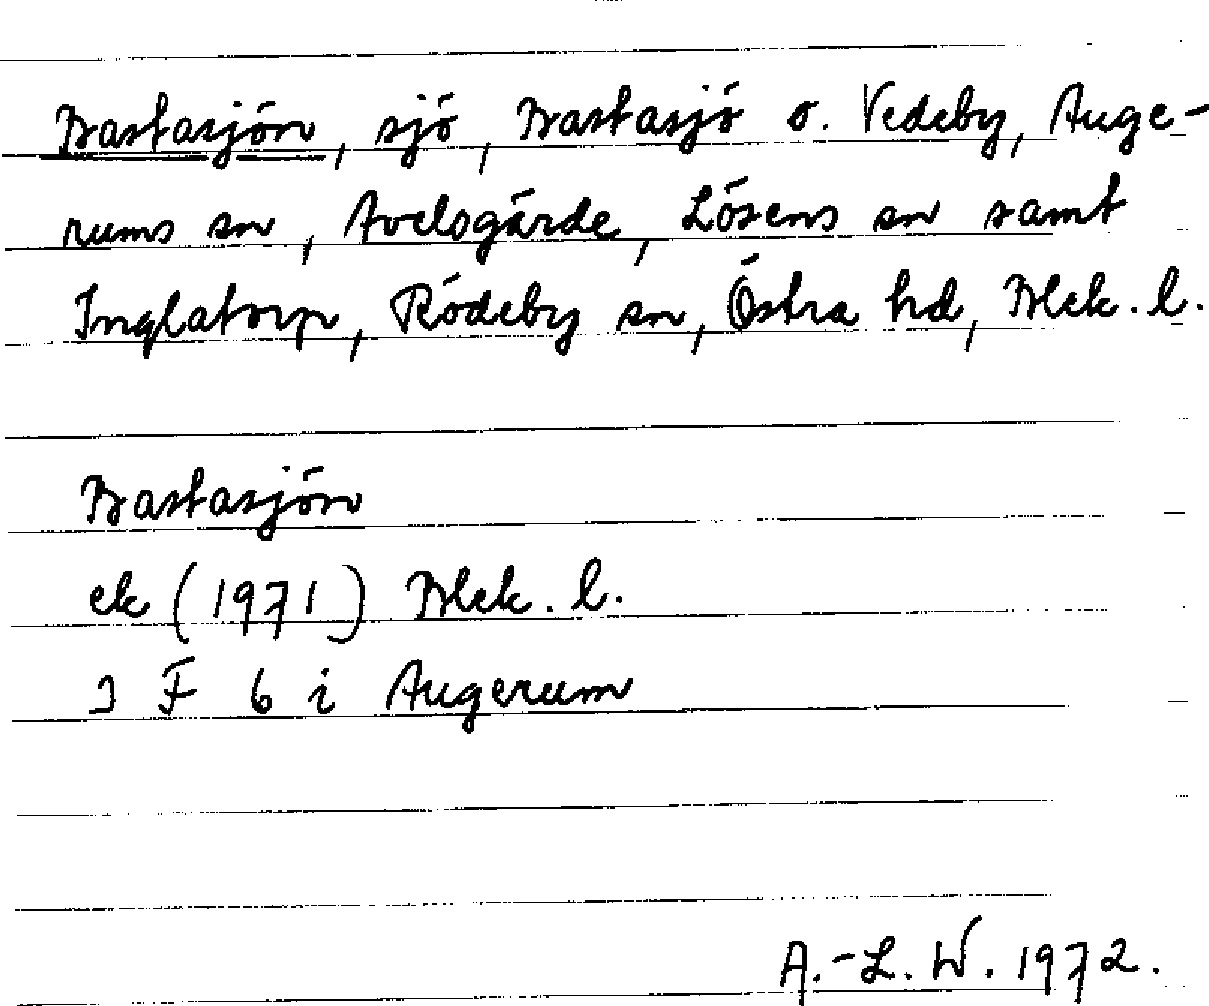 Bastasjön, sjö, Bastasjö o. Vedeby, Auge-
rums sn, Avelsgärde, Lösens sn samt
Inglatorp, Rödeby sn, Östra hd, Blek. l.
Bastasjön
ek (1971) Blek. l.
3 F 6 i Augerum
A.-L. W. 1972.